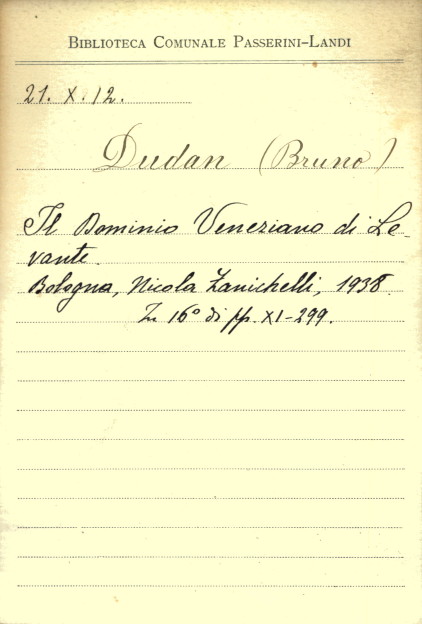 BIBLIOTECA COMUNALE PASSERINI-LANDI
21. X. 12.
Dudan (Bruno)
Il Dominio Veneziano di Le-
vante.
Bologna, Nicola Zanichelli, 1938.
In 16° di pp. XI-299.